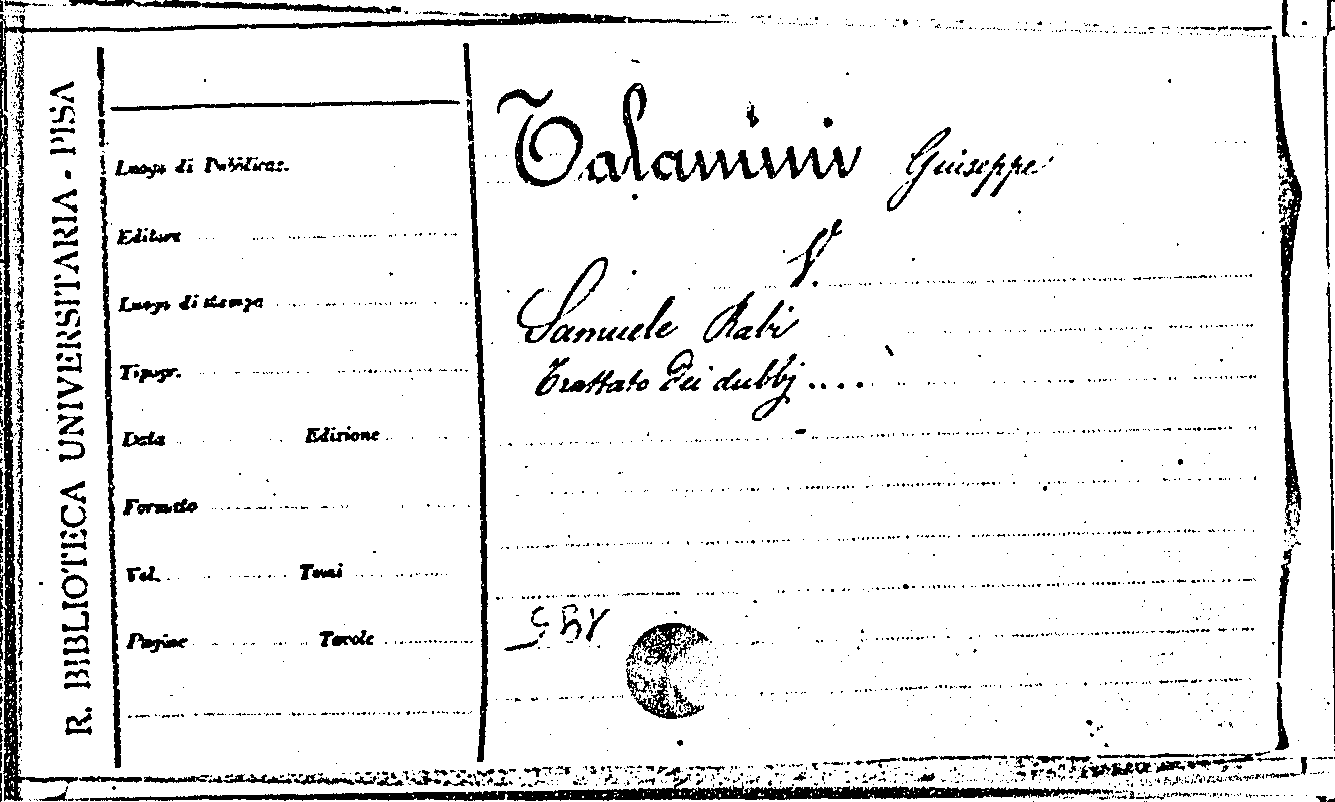 R. BIBLIOTECA UNIVERSITARIA - PISA
Luogo di Pubblicaz.
Editore
Luogo di stampa
Tipogr.
Data Edizione
Formato
Vol. Tomi
Pagine Tavole
Talamini Giuseppe
V.
Samuele Rabi
Trattato dei dubbj....